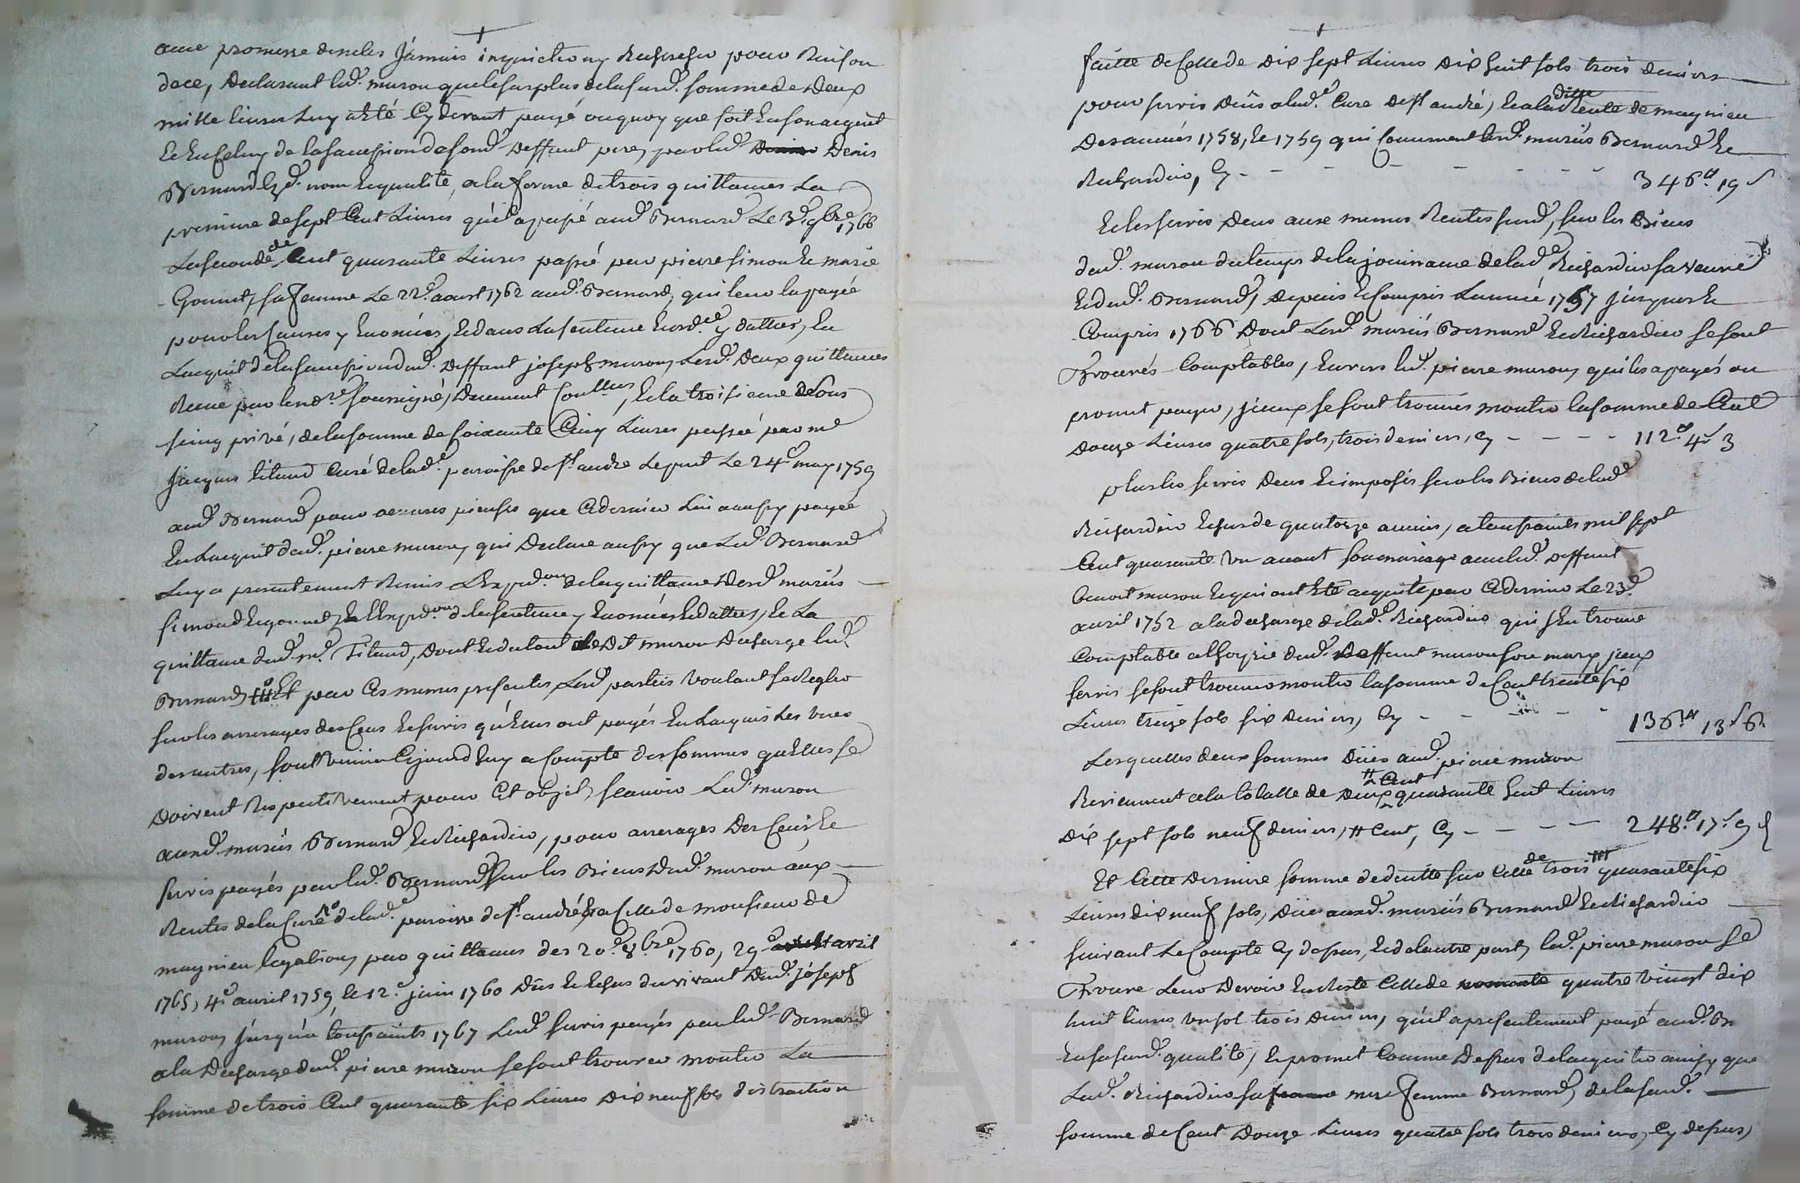 avec promesse de ne les Jamais inquietter ny Rechercher pour Raison
de ce, Declarant led. muron que le surplus de la susd. somme de Deux
mille livres luy a été Cy devant payé ou quoy que soit En son acquit
Et En Celuy de la succession de son d. Deffunt pere, par led. Denis
Bernard esd. nom Et qualité, a la forme de trois quittances La
premiere de sept Cent Livres qu'il a passé aud. Bernard Le 3e 9bre 1766
La seconde de Cent quarante Livres passé par pierre simon Et marie
Gonnet, sa femme Le 22e aoust 1762 aud. Bernard, qui leur la payée
pour les Causes y Enoncées, Et dans La sentence y dattée, En
L'acquit de la succession dud. Deffunt joseph muron, Lesd. Deux quittances
Recue par le nore soussigné, Duement Conllées, Et la troisieme sous
seing privé, de la somme de soixante Cinq Livres passée par mre
jacques titaud Curé de lad. paroisse de st andré Le 24e may 1759
aud. Bernard pour oeuvres pieuses que Ce dernier Lui a aussy payée
En L'acquit dud. pierre muron, qui Declare aussy que Led. Bernard
Luy a presentement Remis L'Expedon de la quittance Desd. mariés
simond Et gonnet, Et L'Expedon de la sentence y Enoncée Et dattée, Et La
quittance dud. mre Titaud, Dont Et du tout Le Dt muron Decharge led.
Bernard, Et par Ces memes presentes Lesd. parties voulant se Regler
sur les arrerages des Cens Et servis qu'Elles ont payés En L'acquit Les unes
des autres, sont venües Cejourd'huy a Compte des sommes qu'Elles se
Doivent Respectivement pour Cet objet, scavoir Led. muron
auxd. mariés Bernard Et Richardier, pour arrerages Des Cens Et
servis payés par led. Bernard sur les Biens Dud. muron aux
Rentes de la Cure de lad. paroisse de st andré, Et a Celle de monsieur de
magnieu par quittances des 20e 8bre 1760, 29e avril
1765, 4e avril 1759, Et 12e juin 1760 Dûs Et Echus du vivant Dud. joseph
muron jusqu'a toussaints 1767 Lesd. servis payés par led. Bernard
a la Decharge dud. pierre muron se sont trouvés monter La
somme de trois Cent quarante six Livres Dix neuf sols distraction
faitte de Celle de Dix sept Livres Dix huit sols trois deniers
pour servis Dûs a lad. Cure De st andré, Et a la ditte Rente de magnieu
Des années 1758, Et 1759 qui Concernent lesd. mariés Bernard Et
Richardier, Cy - - - - - - - 346 tt 19 s
Et les servis Deus aux memes Rentes susd. sur les Biens
dud. muron du temps de la jouissance de lad. Richardier sa veuve
Et dud. Bernard, Depuis Et Compris L'année 1757 jusques Et
Compris 1766 Dont Lesd. mariés Bernard Et Richardier se sont
Trouvés Comptables, Envers led. pierre muron, qui les a payés ou
promet payer, jceux se sont trouvés monter la somme de Cent
Douze Livres quatre sols, trois deniers, Cy - - - - 112 tt 4 s 3
plus les servis Deus Et imposés sur les Biens de lad.
Richardier Echus de quatorze années, a toussaints mil sept
Cent quarante Un avant son mariage avec led. Deffunt
benoit muron Et qui ont Eté acquités par Ce dernier Le 23e
avril 1752 a la decharge de lad. Richardier qui s'En trouve
Comptable a l'hoyrie dud. Deffunt muron son mary jceux
servis se sont trouvés monter la somme de Cent trente six
Livres treize sols six Deniers, Cy - - - - - 136 tt 13 s 6 d
Lesquelles deux sommes Düés aud. pierre muron
Reviennent a la totalle de Deux Cent quarante huit Livres
Dix sept sols neuf deniers, tt Cent, Cy - - - - 248 tt 17 s 9 d
Et Cette Derniere somme deduitte sur Celle de trois quarante six
Livres dix neuf sols, Düe auxd. mariés Bernard Et Richardier
suivant Le Compte Cy dessus, Et d'autre part, led. pierre muron se
Trouve Leur Devoir En Reste Celle de quatre vingt dix
huit livres un sol trois Deniers, qu'il a presentement payé aud. Br
En sa susd. qualité, Et promet Comme Dessus de l'acquitter ainsy que
Lad. Richardier sa mere femme Bernard, de la susd.
somme de Cent Douze Livres quatre sols trois deniers, Cy dessus,